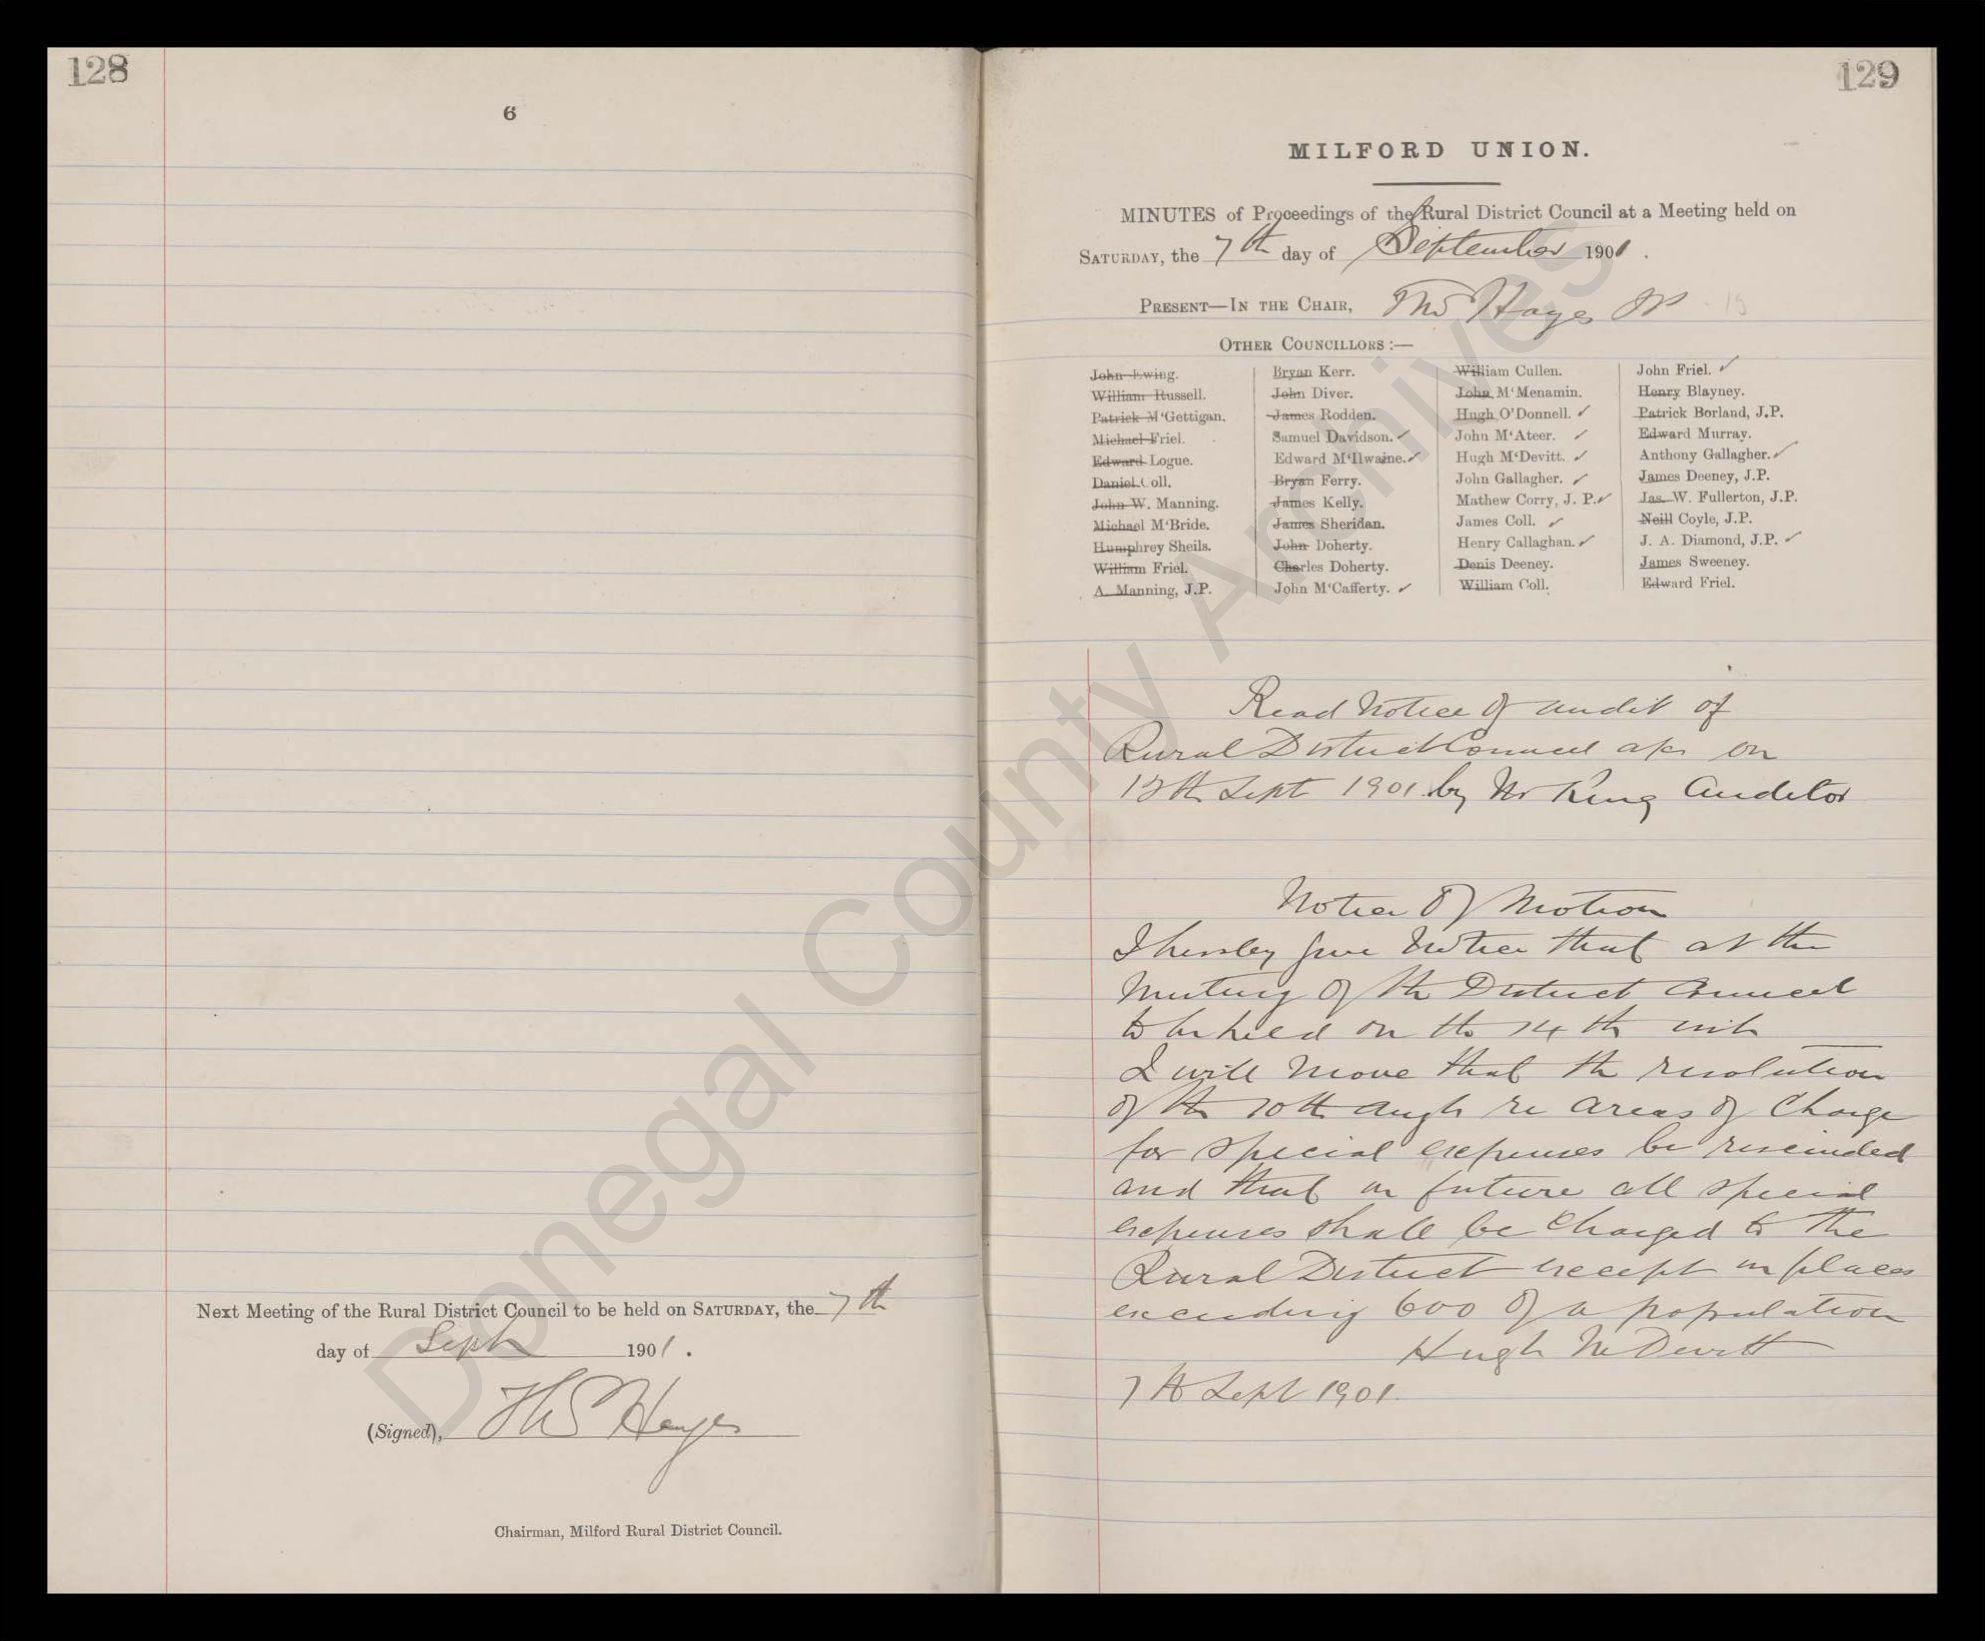 128
6
Next Meeting of the Rural District Council to be held on SATURDAY, the 7th
day of Sept 1901.
(Signed), Thos Hayes
Chairman, Milford Rural District Council.
129
MILFORD UNION.
MINUTES of Proceedings of the Rural District Council at a Meeting held on
SATURDAY, the 7th day of September 1901.
PRESENT—IN THE CHAIR, Thos Hayes JP
OTHER COUNCILLORS:—
John Ewing.
William Russell.
Patrick M'Gettigan.
Michael Friel.
Edward Logue.
Daniel Coll.
John W. Manning.
Michael M'Bride.
Humphrey Sheils.
William Friel.
A. Manning, J.P.
Bryan Kerr.
John Diver.
James Rodden.
Samuel Davidson. ✓
Edward M'Ilwaine. ✓
Bryan Ferry.
James Kelly.
James Sheridan.
John Doherty.
Charles Doherty.
John M'Cafferty. ✓
William Cullen.
John M'Menamin.
Hugh O'Donnell. ✓
John M'Ateer. ✓
Hugh M'Devitt. ✓
John Gallagher. ✓
Mathew Corry, J. P. ✓
James Coll. ✓
Henry Callaghan. ✓
Denis Deeney.
William Coll.
John Friel. ✓
Henry Blayney.
Patrick Borland, J.P.
Edward Murray.
Anthony Gallagher. ✓
James Deeney, J.P.
Jas. W. Fullerton, J.P.
Neill Coyle, J.P.
J. A. Diamond, J.P. ✓
James Sweeney.
Edward Friel.
Read Notice of audit of
Rural District Council a/cs on
Sept 1901 by Mr King Auditor
Notice of Motion
I hereby give Notice that at the
Meeting of the District Council
to be held on the 14th inst
I will move that the resolution
of the 10th Augt re areas of Charge
for special expenses be rescinded
and that in future all special
expenses shall be charged to the
Rural District except in places
exceeding 600 of a population
Hugh McDevitt
7th Sept 1901.
Donegal County Archives